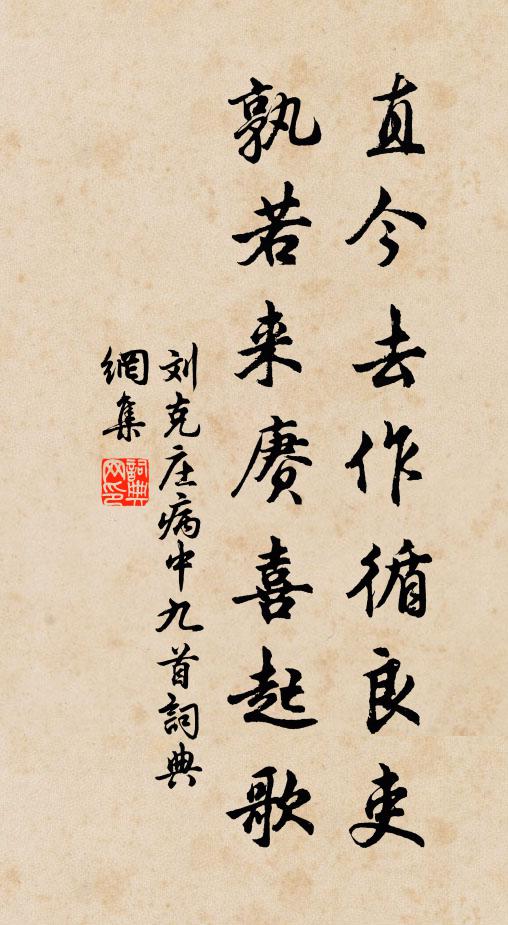 直今去作循良吏
孰若来赓喜起歌
刘克庄病中九首词典
網集
詞典网印